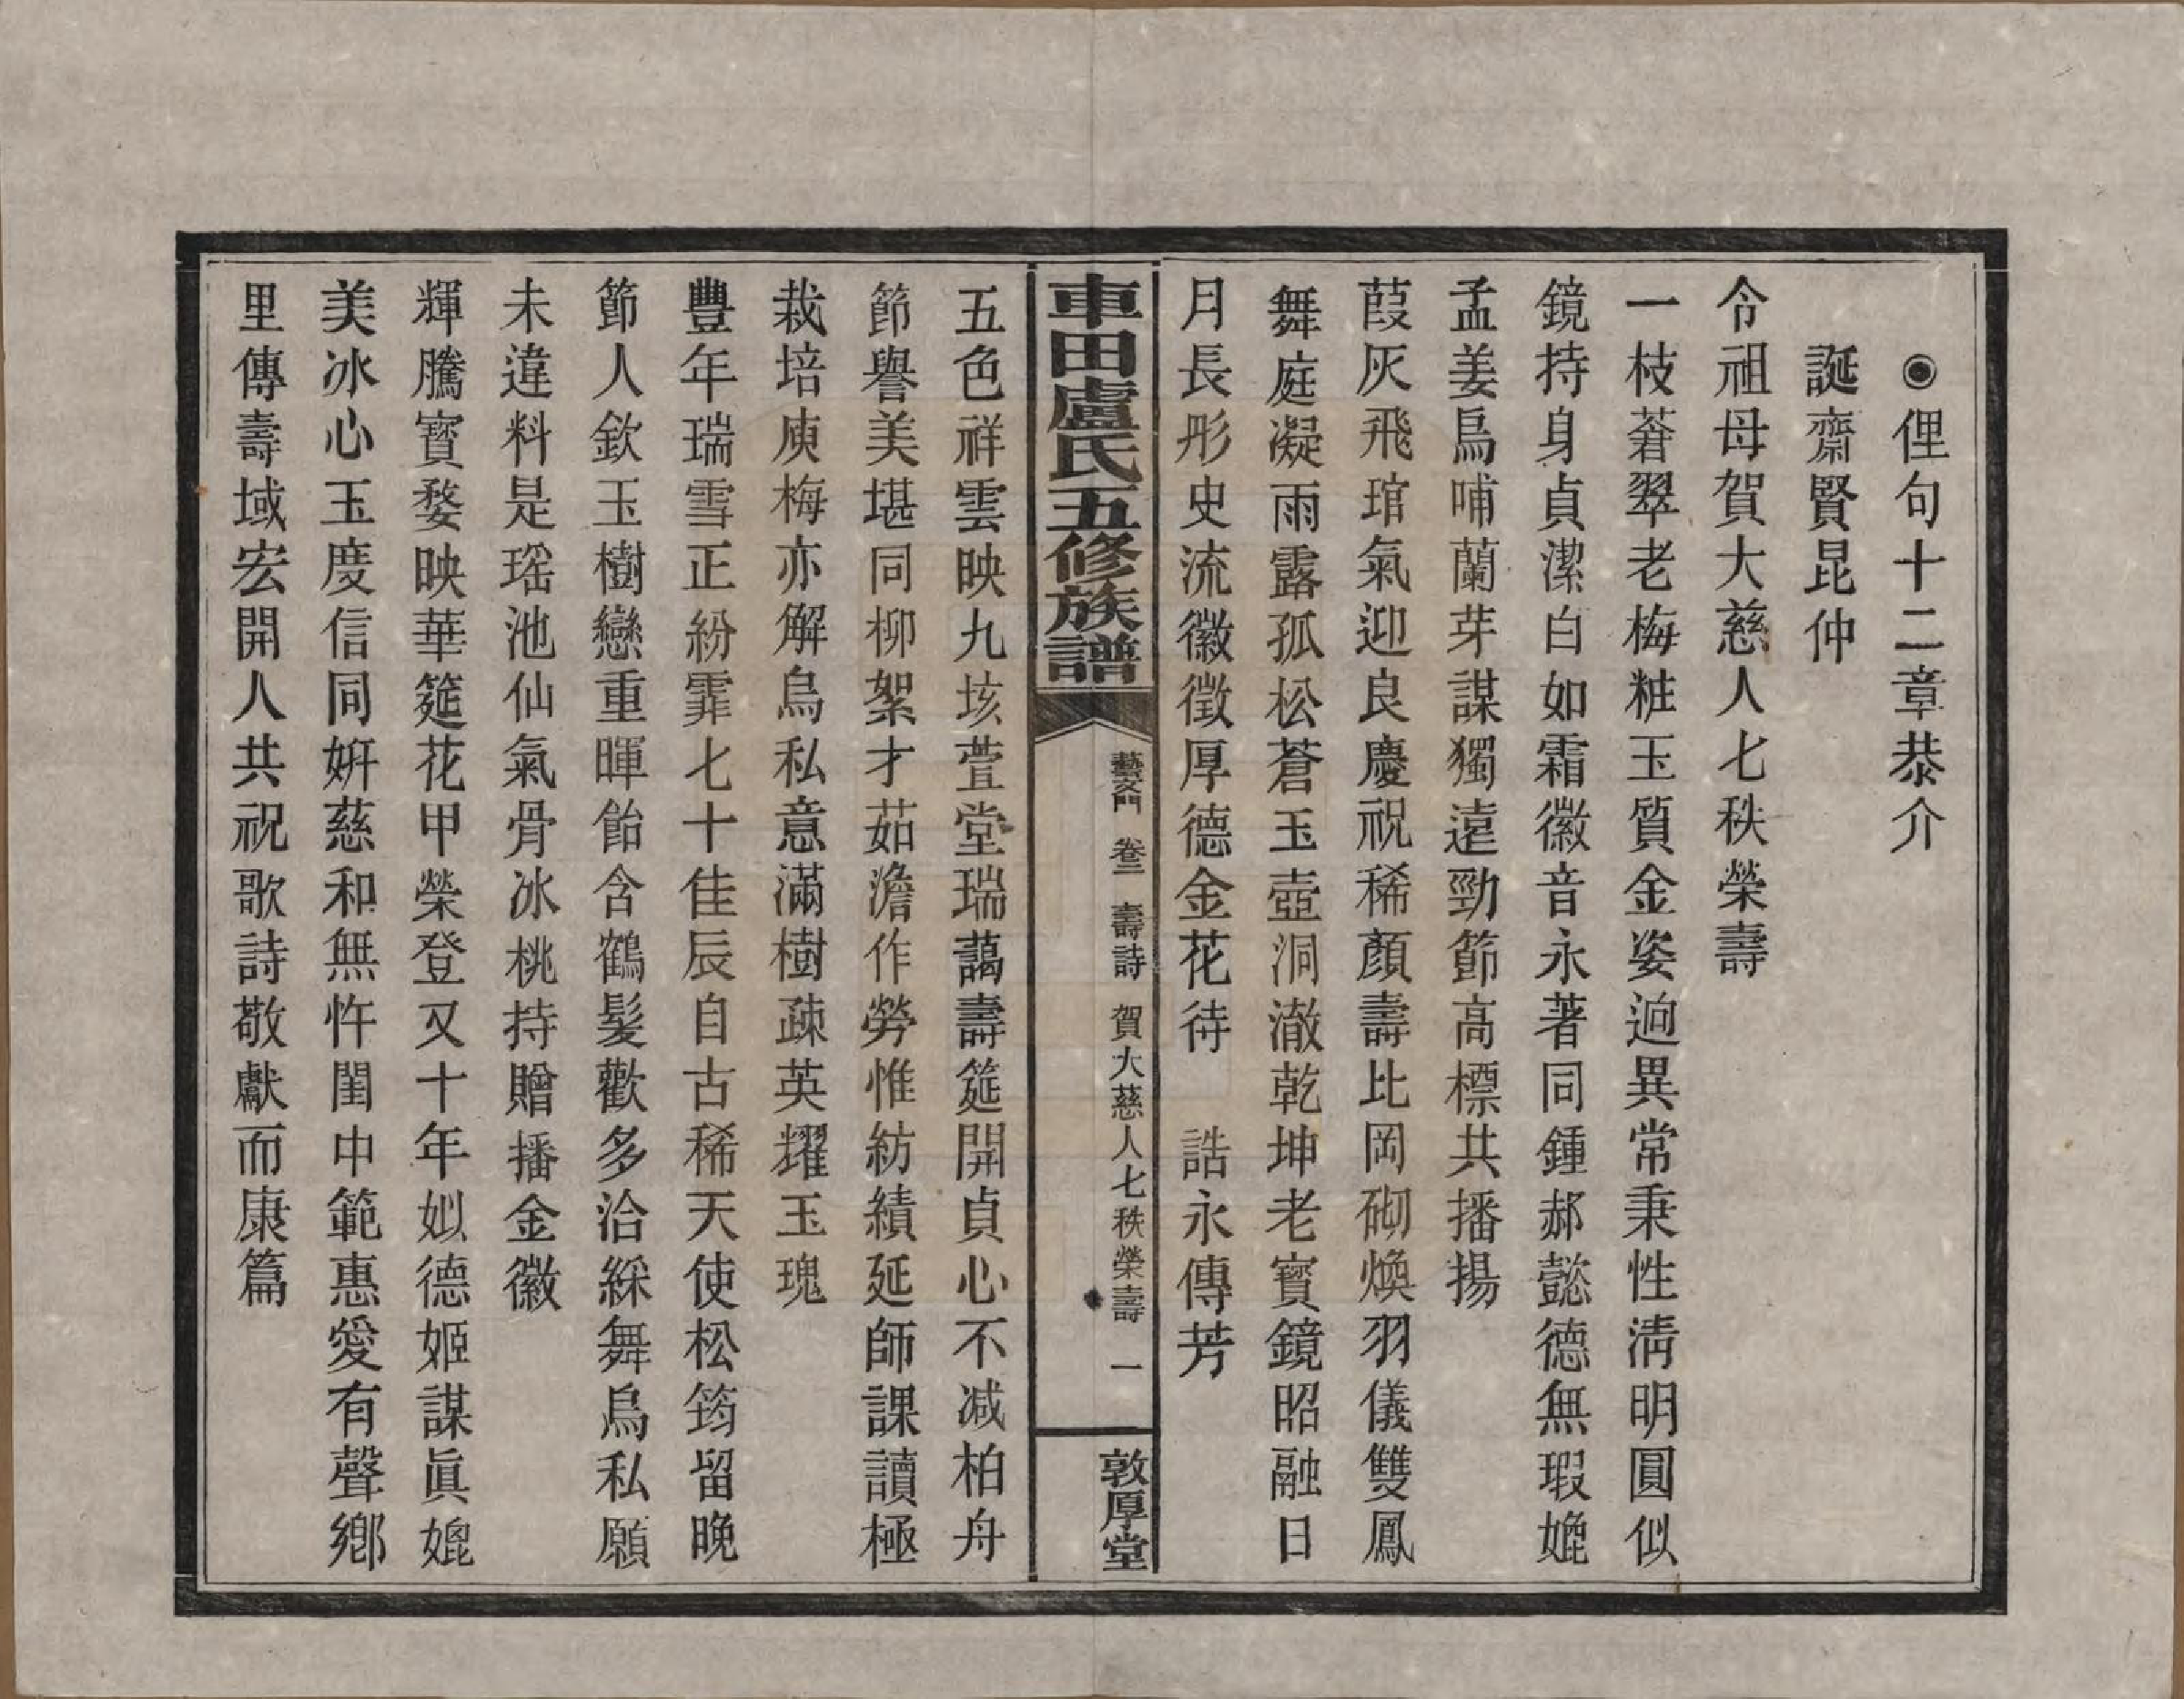 ◉俚句十二章恭介
誕齋賢昆仲
令祖母賀大慈人七秩榮壽
一枝蒼翠老梅粧玉質金姿逈異常秉性淸明圓似
鏡持身貞潔白如霜徽音永著同鍾郝懿德無瑕媲
孟姜烏哺蘭芽謀獨遠勁節高標共播揚
葭灰飛琯氣迎良慶祝稀顏壽比岡砌煥羽儀雙鳳
舞庭凝雨露孤松蒼玉壺洞澈乾坤老寶鏡昭融日
月長彤史流徽徵厚德金花待　誥永傳芳
車田盧氏五修族譜
藝文門　卷三　壽詩　賀大慈人七秩榮壽　一
敦厚堂
五色祥雲映九垓萱堂瑞藹壽筵開貞心不減柏舟
節譽美堪同柳絮才茹澹作勞惟紡績延師課讀極
栽培庾梅亦解烏私意滿樹疎英耀玉瑰
豐年瑞雪正紛霏七十佳辰自古稀天使松筠留晚
節人欽玉樹戀重暉飴含鶴髮歡多洽綵舞烏私願
未違料是瑶池仙氣骨冰桃持贈播金徽
輝騰寶婺映華筵花甲榮登又十年姒德姬謀眞媲
美冰心玉度信同姸慈和無忤閨中範惠愛有聲鄉
里傳壽域宏開人共祝歌詩敬獻而康篇